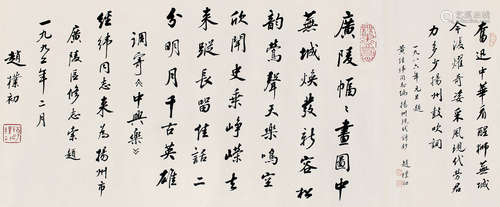 奮迅中華看醒獅蕪城
今後耀奇姿采風現代芳君
力多少揚州鼓吹詞
一九八六年元旦題
黃經緯同志編揚州現代詩鈔 趙樸初
廣陵幅〻畫圖中
蕪城煥發新容松
韵鶯聲天樂鳴空
欣聞史乘崢嶸去
來蹤長留佳話二
分明月千古英雄
調寄《中興樂》
經緯同志來為揚州市
廣陵區修志索題
一九九二年二月
趙樸初